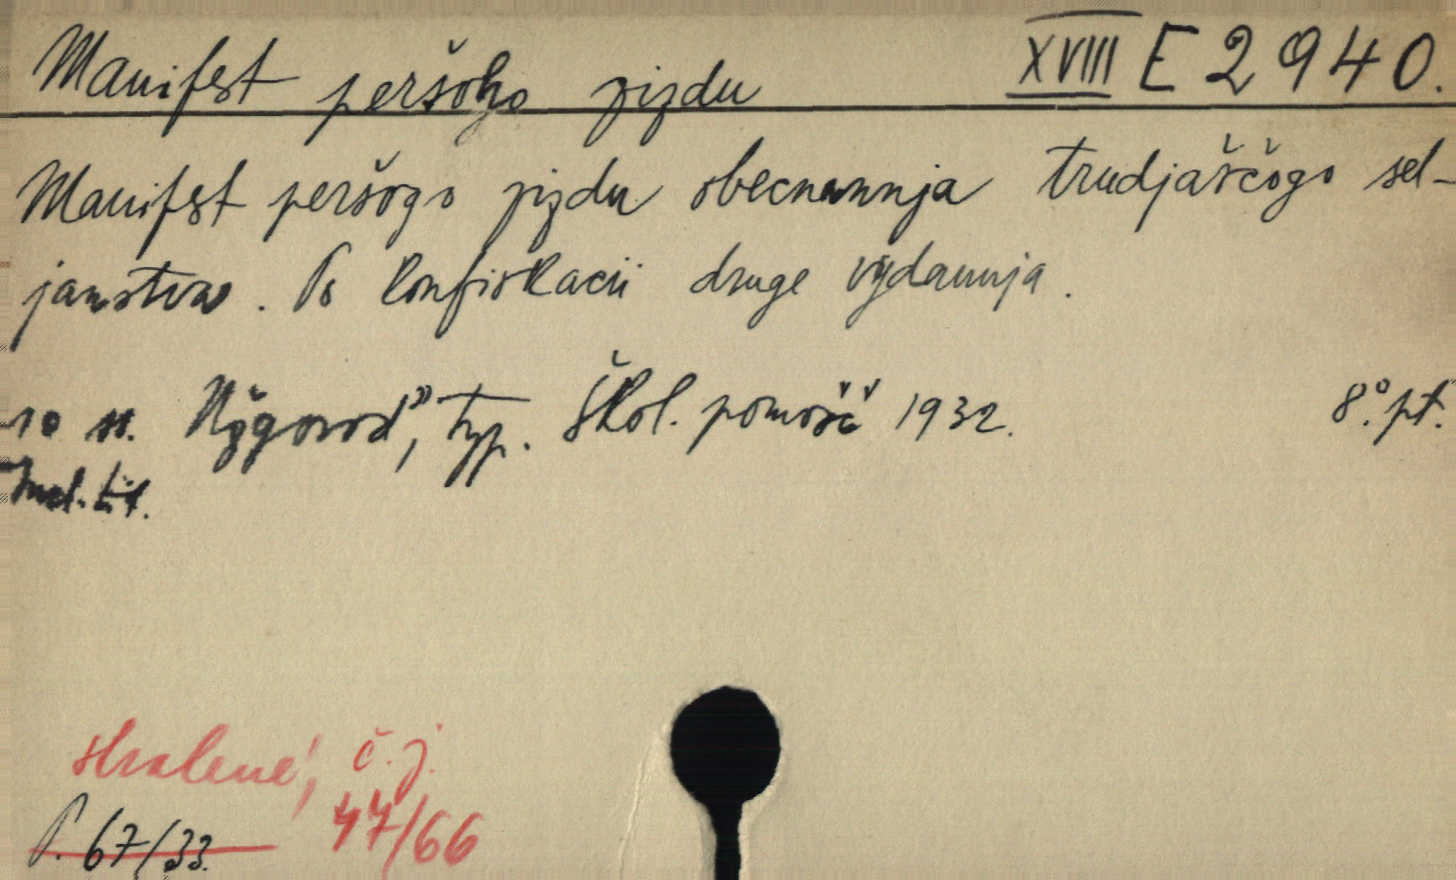 Manifest peršoho zjizdu XVIII E 2940.
Manifest peršogo zjizdu obecnannja trudjaščogo sel-
janstva. Po konfiskacii druge vydannja.
10 st. Užgorod", typ. Škol. pomošč 1932. 8°. př.
Incl. tit.
ztracené, č. j.
47/66
P. 67/33.